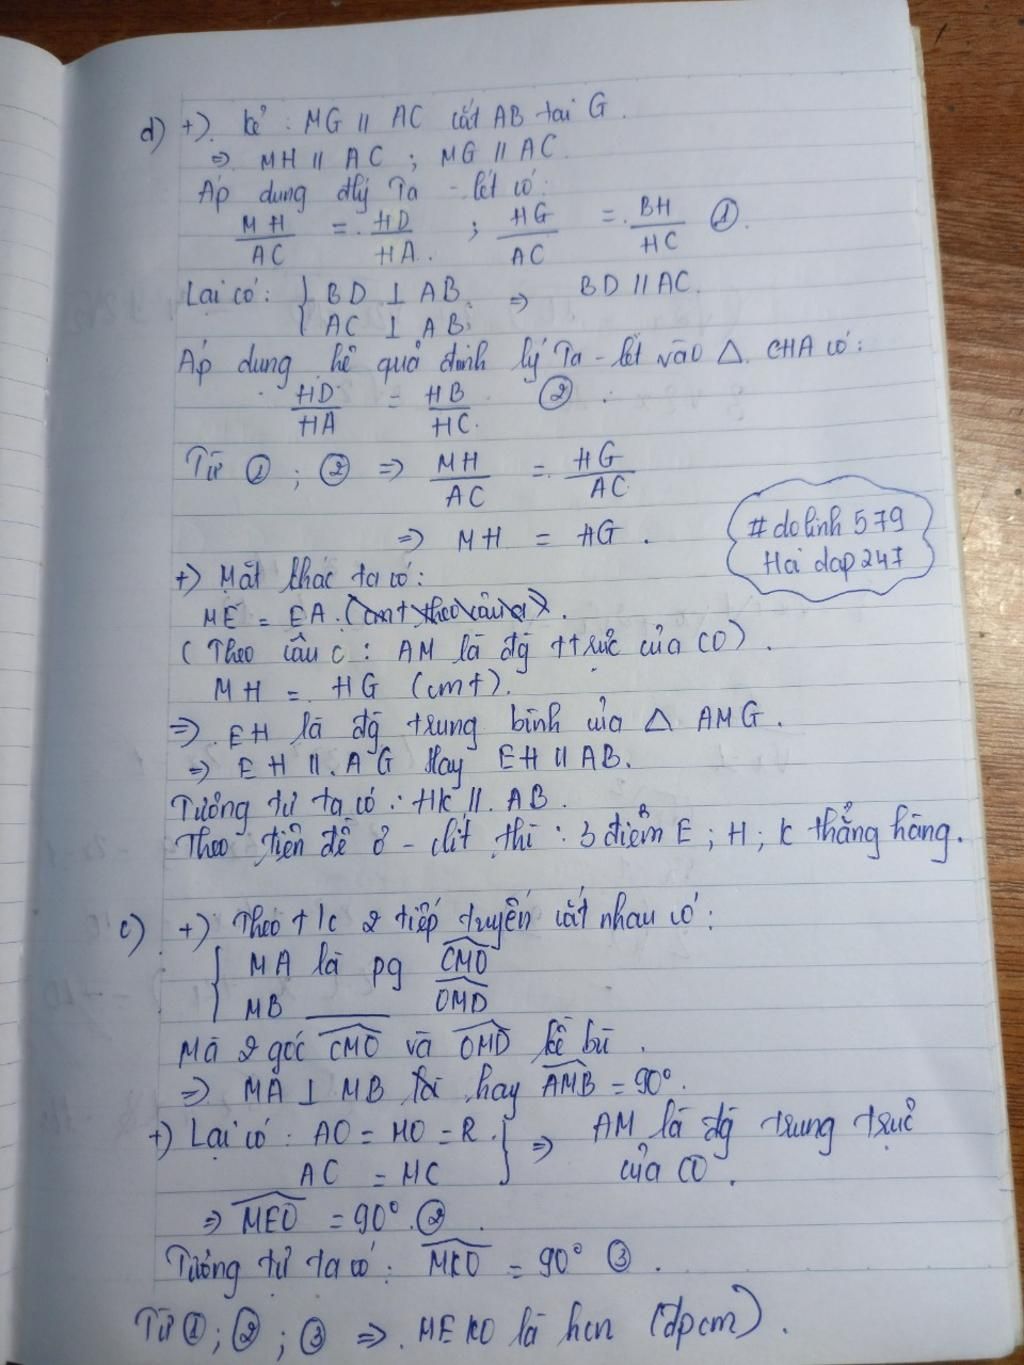 d) +). kẻ : MG // AC cắt AB tại G.
⇒ MH // AC ; MG // AC.
Áp dụng đlý Ta - lét có:
MH/AC = HD/HA. ; HG/AC = BH/HC ①.
Lại có: { BD ⊥ AB. ⇒ BD // AC.
{ AC ⊥ AB.
Áp dụng hệ quả định lý Ta - lét vào Δ. CHA có:
HD/HA = HB/HC. ② .
Từ ① ; ② ⇒ MH/AC = HG/AC
⇒ MH = HG .
# dolinh 579
Hoi dap 247
+) Mặt khác ta có:
ME = EA. (cmt theo câu a).
( Theo câu c : AM là đg ttrực của CO) .
MH = HG (cmt).
⇒ EH là đg trung bình của Δ AMG .
⇒ EH // AG Hay EH // AB.
Tương tự ta có : HK // AB .
Theo tiên đề ơ - clít thì : 3 điểm E ; H ; K thẳng hàng.
c) +) Theo t/c 2 tiếp tuyến cắt nhau có :
{ MA là pg CMO
{ MB ___ OMD
Mà 2 góc CMO và OMD kề bù .
⇒ MA ⊥ MB hay AMB = 90°.
+) Lại có : AO = MO = R. } ⇒ AM là đg trung trực
AC = MC } của CO .
⇒ MEO = 90° . ② .
Tương tự ta có : MKO = 90° ③ .
Từ ① ; ② ; ③ ⇒ . MEKO là hcn (đpcm) .